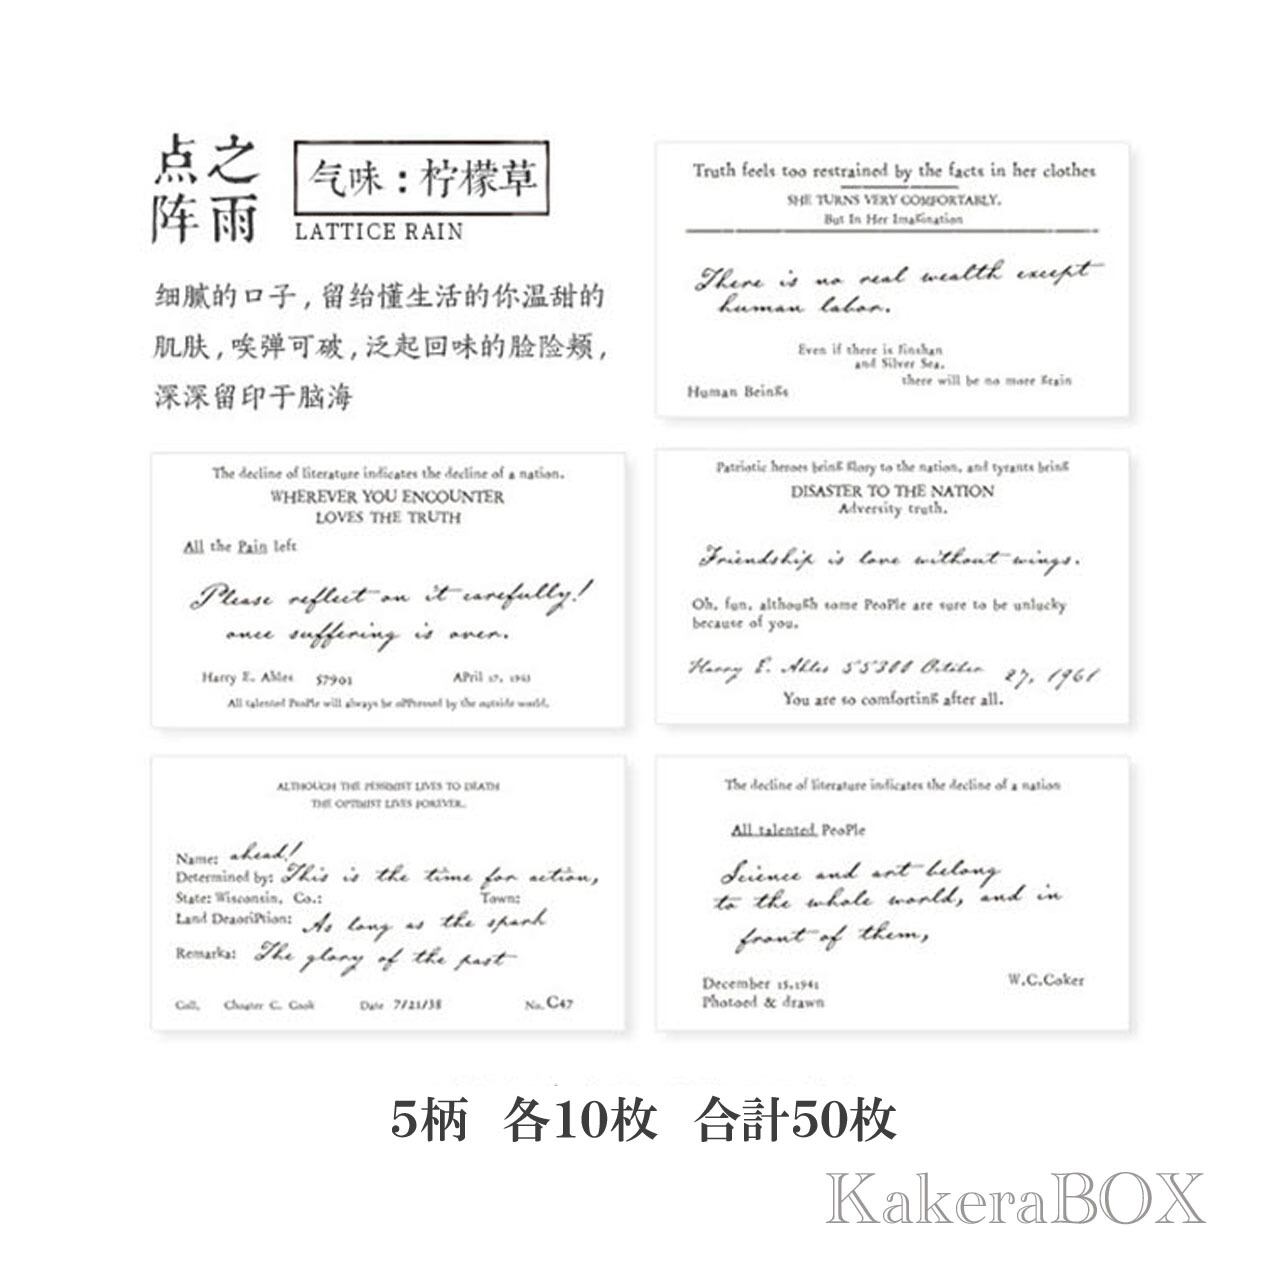 点之
阵雨
气味：柠檬草
LATTICE RAIN
细腻的口子，留给懂生活的你温甜的
肌肤，唉弹可破，泛起回味的脸险颊，
深深留印于脑海
Truth feels too restrained by the facts in her clothes
SHE TURNS VERY COMFORTABLY.
But In Her Imagination
There is no real wealth except
human labor.
Even if there is Jinshan
and Silver Sea,
there will be no more grain
Human Beings
The decline of literature indicates the decline of a nation.
WHEREVER YOU ENCOUNTER
LOVES THE TRUTH
All the Pain left
Please reflect on it carefully!
once suffering is over.
Harry E. Ahles 57901 APril 17, 1961
All talented PeoPle will always be oPPressed by the outside world.
Patriotic heroes being glory to the nation, and tyrants being
DISASTER TO THE NATION
Adversity truth.
Friendship is love without wings.
Oh, fun, although some PeoPle are sure to be unlucky
because of you.
Harry E. Ahles 55300 October 27, 1961
You are so comforting after all.
ALTHOUGH THE PESSIMIST LIVES TO DEATH
THE OPTIMIST LIVES FOREVER.
Name: ahead!
Determined by: This is the time for action,
State: Wisconsin, Co.: Town:
Land DeaoriPtion: As long as the spark
Remarka: The glory of the past
Coll. C. Cook Date 7/21/38 No. C47
The decline of literature indicates the decline of a nation
All talented PeoPle
Science and art belong
to the whole world, and in
front of them,
December 15,1941
W.C.Coker
Photoed & drawn
5柄 各10枚 合計50枚
KakeraBOX